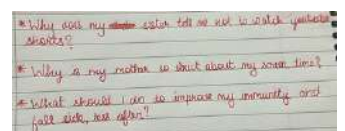 * Why does my sister tell me not to watch youtube
shorts?
* Why is my mother so strict about my screen time?
* What should I do to improve my immunity and
fall sick, less often?